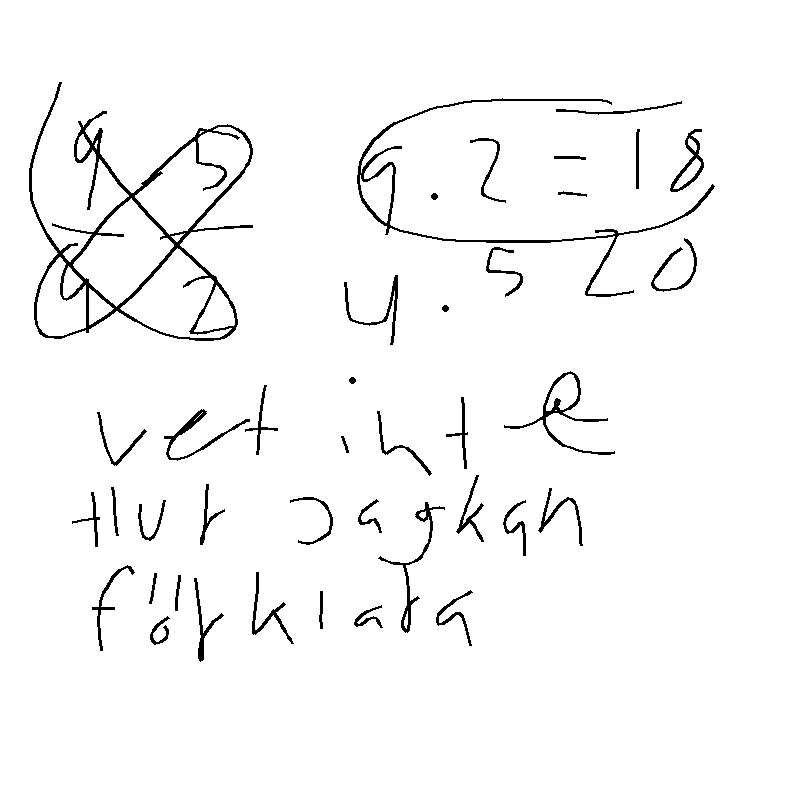 9 5 9 · 2 = 18
4 2 4 · 5 20
vet inte
Hur Jag kan
förklara